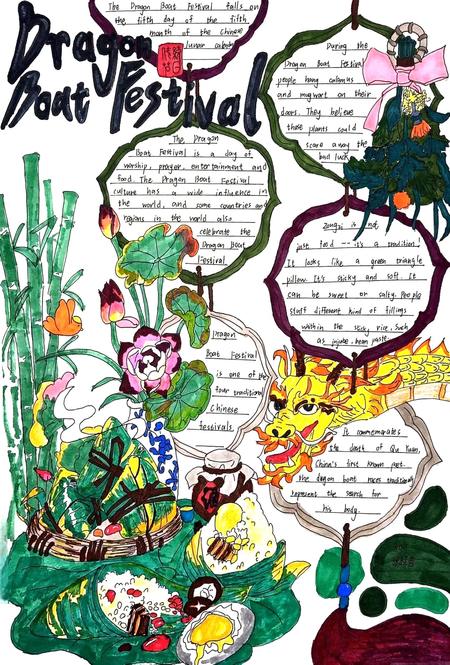 Dragon
Boat Festival
The Dragon Boat Festival falls on
the fifth day of the fifth
month of the Chinese
lunar
During the
Dragon Boat Festival
people hang calamus
and mugwort on their
doors. They believe
these plants could
scare away the
bad luck
The Dragon
Boat Festival is a day of
worship, prayer, entertainment and
food. The Dragon Boat Festival
culture has a wide influence in
the world, and some countries and
regions in the world also
celebrate the
Dragon Boat
Festival
Zongzi is not
just food -- it's a tradition.
It looks like a green triangle
pillow. It's sticky and soft. It
can be sweet or salty. People
stuff different kind of fillings
within the sticky rice, such
as jujube, bean paste.
Dragon
Boat Festival
is one of the
four traditional
Chinese
festivals.
It commemorates
the death of Qu Yuan,
China's first known poet.
The dragon boat races traditionally
represent the search for
his body.